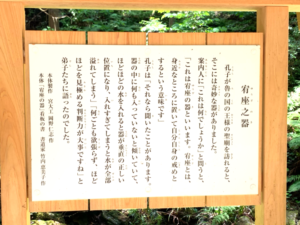 宥座之器
孔子が魯の国の王様の聖廟を訪れると、
そこには奇妙な器がありました。
案内人に「これは何でしょうか」と問うと、
「これは宥座の器といいます。宥座とは、
身近なところに置いて自分自身の戒めと
するという意味です」
孔子は「それなら聞いたことがあります。
器の中に何も入っていないと傾いていて、
ほどほどの水を入れると器が垂直の正しい
位置になり、入れすぎてしまうと水が全部
溢れてしまう」「何ごとも欲張らず、ほど
ほどを見極める判断力が大事ですね」と
弟子たちに語ったのでした。
本体製作 宮大工 岡野仁 作
本体「宥座の器」看板の書 書道家 竹内恵美子 作